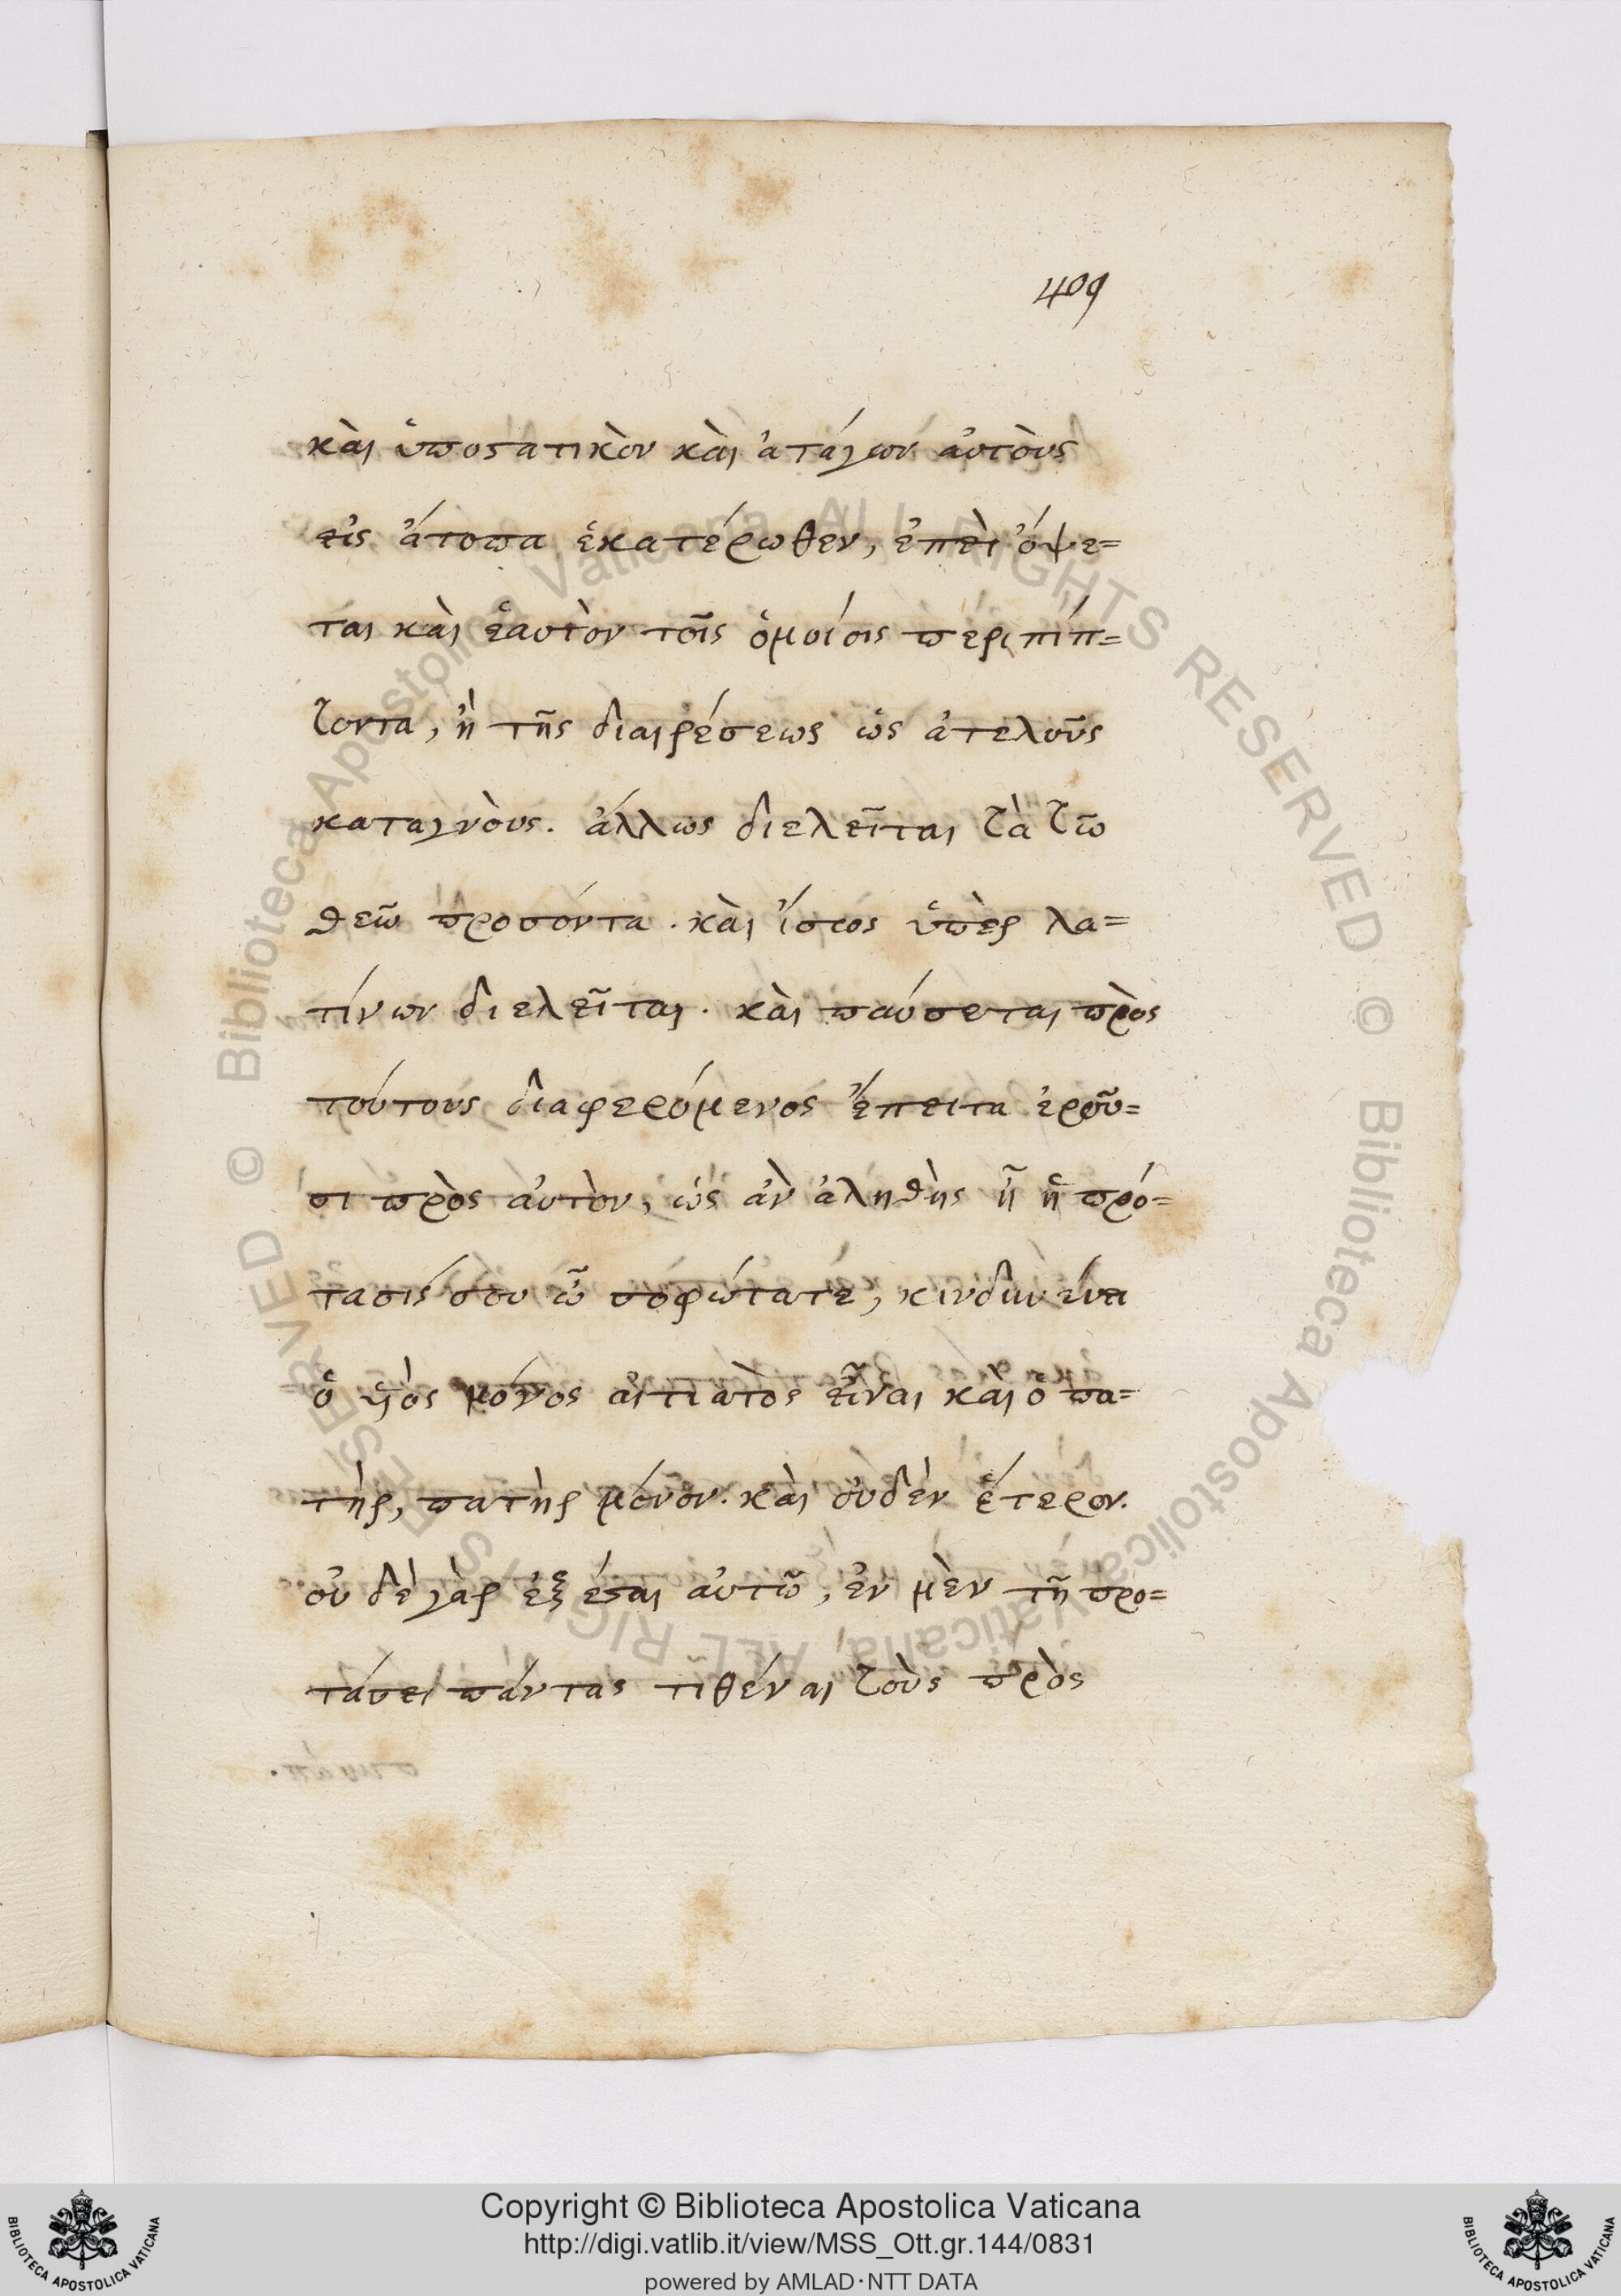 409
καὶ ὑποστατικὸν καὶ ἀπάγων αὐτοὺς
εἰς ἄτοπα ἑκατέρωθεν, ἐπεὶ ὄψε=
ται καὶ ἑαυτὸν τοῖς ὁμοίοις περιπίπ=
τοντα, ἢ τῆς διαιρέσεως ὡς ἀτελοῦς
καταγνοὺς. ἄλλως διελεῖται τὰ τῶ
θεῶ προσόντα. καὶ ἴσως ὑπὲρ λα=
τίνων διελεῖται. καὶ παύσεται πρὸς
τούτους διαφερόμενος ἔπειτα ἐροῦ=
σι πρὸς αὐτὸν, ὡς ἂν ἀληθὴς ἦ ἡ πρό=
τασίς σου ὦ σοφώτατε, κινδυνεύει
ὁ υἱὸς μόνος αἰτιατὸς εἶναι καὶ ὁ πα=
τὴρ, πατὴρ μόνον. καὶ οὐδὲν ἕτερον.
οὐ δὲ γὰρ ἐξέσται αὐτῶ, ἐν μὲν τῆ προ=
τάσει πάντας τιθέναι τοὺς πρὸς
© Biblioteca Apostolica Vaticana ALL RIGHTS RESERVED © Biblioteca Apostolica Vaticana ALL RIGHTS RESERVED
Copyright © Biblioteca Apostolica Vaticana
http://digi.vatlib.it/view/MSS_Ott.gr.144/0831
powered by AMLAD·NTT DATA
BIBLIOTECA APOSTOLICA VATICANA
BIBLIOTECA APOSTOLICA VATICANA